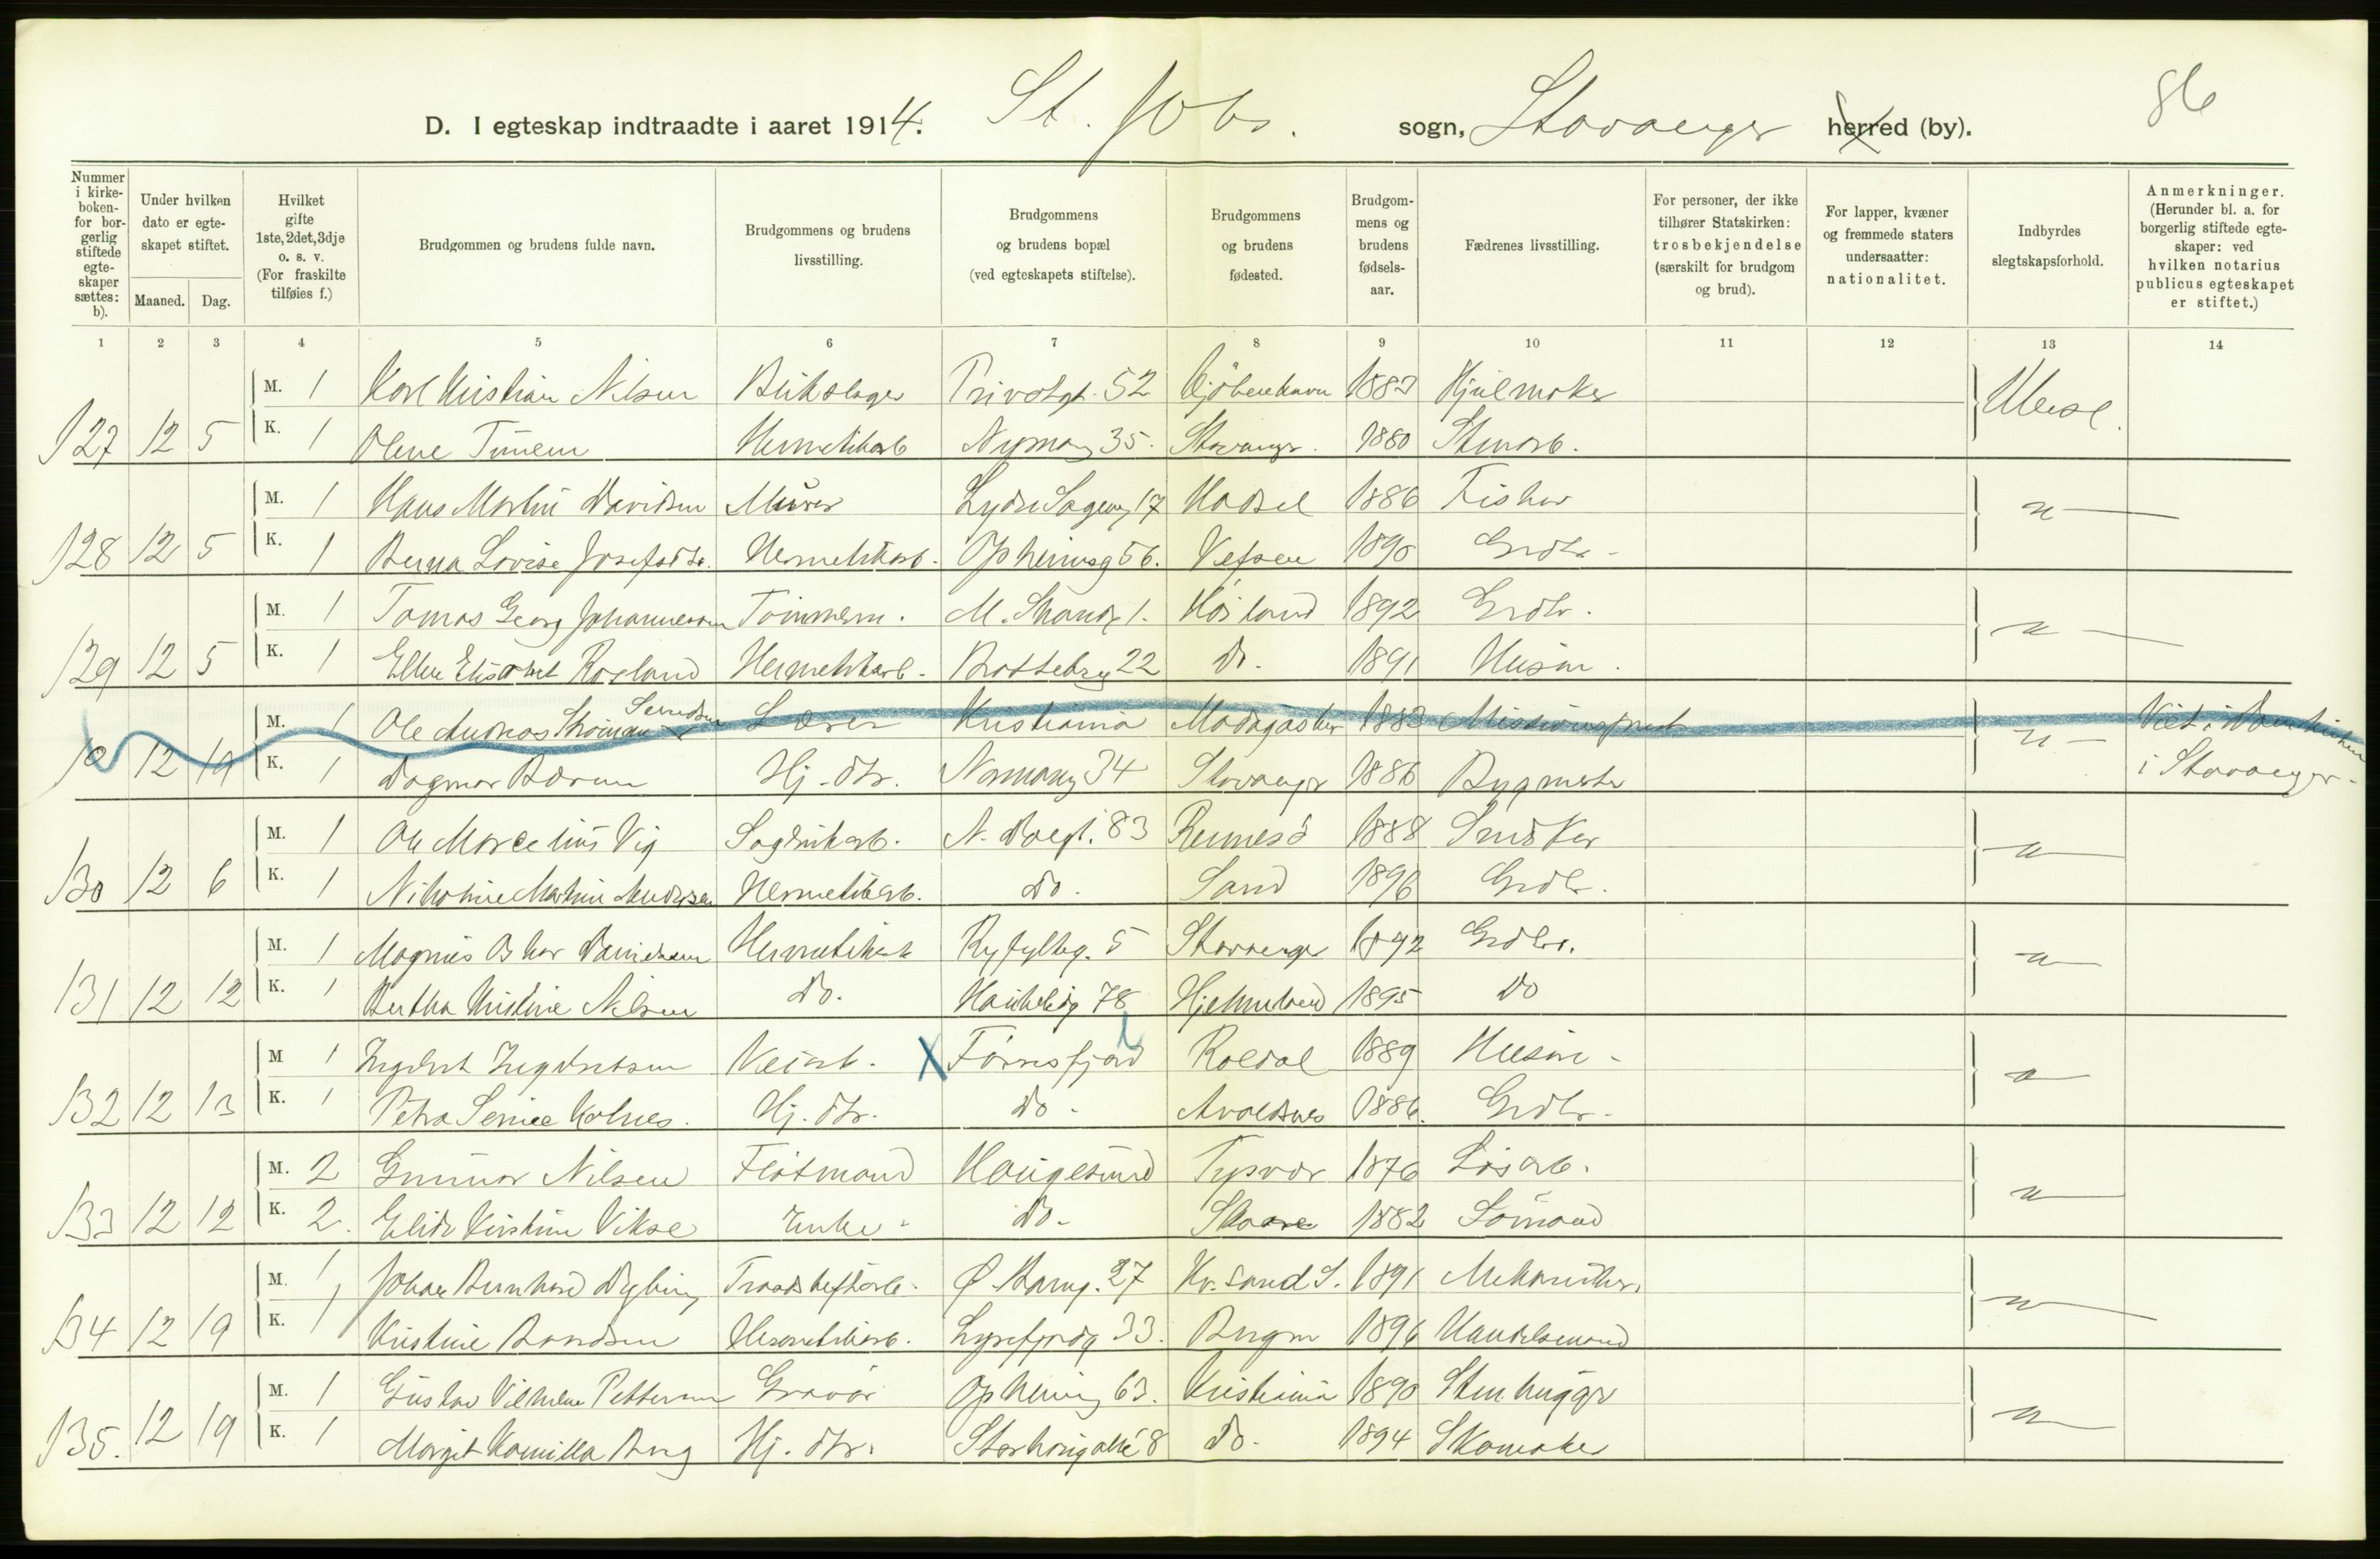 86
D. I egteskap indtraadte i aaret 1914. St. Johs. sogn, Stavanger herred (by).
Nummer i kirkeboken- for borgerlig stiftede egteskaper sættes: b).
Under hvilken dato er egteskapet stiftet.
Maaned. Dag.
Hvilket gifte 1ste, 2det, 3dje o. s. v. (For fraskilte tilføies f.)
Brudgommen og brudens fulde navn.
Brudgommens og brudens livsstilling.
Brudgommens og brudens bopæl (ved egteskapets stiftelse).
Brudgommens og brudens fødested.
Brudgommens og brudens fødselsaar.
Fædrenes livsstilling.
For personer, der ikke tilhører Statskirken: trosbekjendelse (særskilt for brudgom og brud).
For lapper, kvæner og fremmede staters undersaatter: nationalitet.
Indbyrdes slegtskapsforhold.
Anmerkninger. (Herunder bl. a. for borgerlig stiftede egteskaper: ved hvilken notarius publicus egteskapet er stiftet.)
1 2 3 4 5 6 7 8 9 10 11 12 13 14
M. 1 Karl Kristian Nilsen Blikslager Privatgt. 52 Kjöbenhavn 1883 Hjulmaker
127 12 5 K. 1 Olene Tunem Hermetikarb Nymansg 35. Stavanger. 1880 Stenarb. Ubesl.
M. 1 Hans Martin Davidsen Murer Lyder Sagensg 17 Hadsel 1886 Fisker
128 12 5 K. 1 Berna Lovise Josefsdtr. Hermetikarb. Opheimsg 56. Vefsen 1890 Grdbr. "
M. 1 Tomas Georg Johannessen Tömmerm. M. Strandg 1. Höiland 1892 Grdbr.
129 12 5 K. 1 Ellen Elisabet Rosland Hermetikarb. Brattebrg 22 do. 1891 Husm. "
M. 1 Ole Andreas Skrömme Sevedsen Lærer Kristiania Madagaskar 1883 Missionsprest Viet i Domkirken
10 12 19 K. 1 Dagmar Barum Hj. dtr. Normansg 34 Stavanger 1886 Bygmester " i Stavanger.
M. 1 Ole Marcelius Vig Sagbrukarb. N. Dalgt. 83 Rennesö 1888 Snedker
130 12 6 K. 1 Nikoline Martine Andersen Hermetikarb. do. Sand 1896 Grdbr. "
M. 1 Magnus Oskar Danielsen Hermetikarb Ryfylkeg. 5 Stavanger 1892 Grdbr.
131 12 12 K. 1 Bertha Kristine Nilsen do. Haukelidg 78 Hjelmeland 1895 do "
M 1 Ingebret Ingebretsen Veiarb. X Förresfjord Roldal 1889 Husm.
132 12 13 K. 1 Petra Serine Kolnes. Hj. dtr. do. Avaldsnes 1886. Grdbr. "
M. 2 Gunnar Nilsen Flötmand Haugesund Tysvær 1876 Lösarb.
133 12 12 K. 2. Elida Kirstine Vikse Enke. do. Skaare 1882 Sömand "
M. 1 Johan Bernhard Dybing Traadstiftarb. Ø Bang. 27 Kr.sand S. 1891 Mekaniker.
134 12 19 K. 1 Kristine Berndsen Hermetikarb. Lysefjordg 33. Bergen 1896 Handelsmand "
M. 1 Gustav Vilhelm Pettersen Gravör Opheimsg 63. Kristiania 1890 Stenhugger
135. 12 19 K. 1 Margit Kamilla Berg Hj. dtr. Storhaugalle 8 do. 1894 Skomaker "